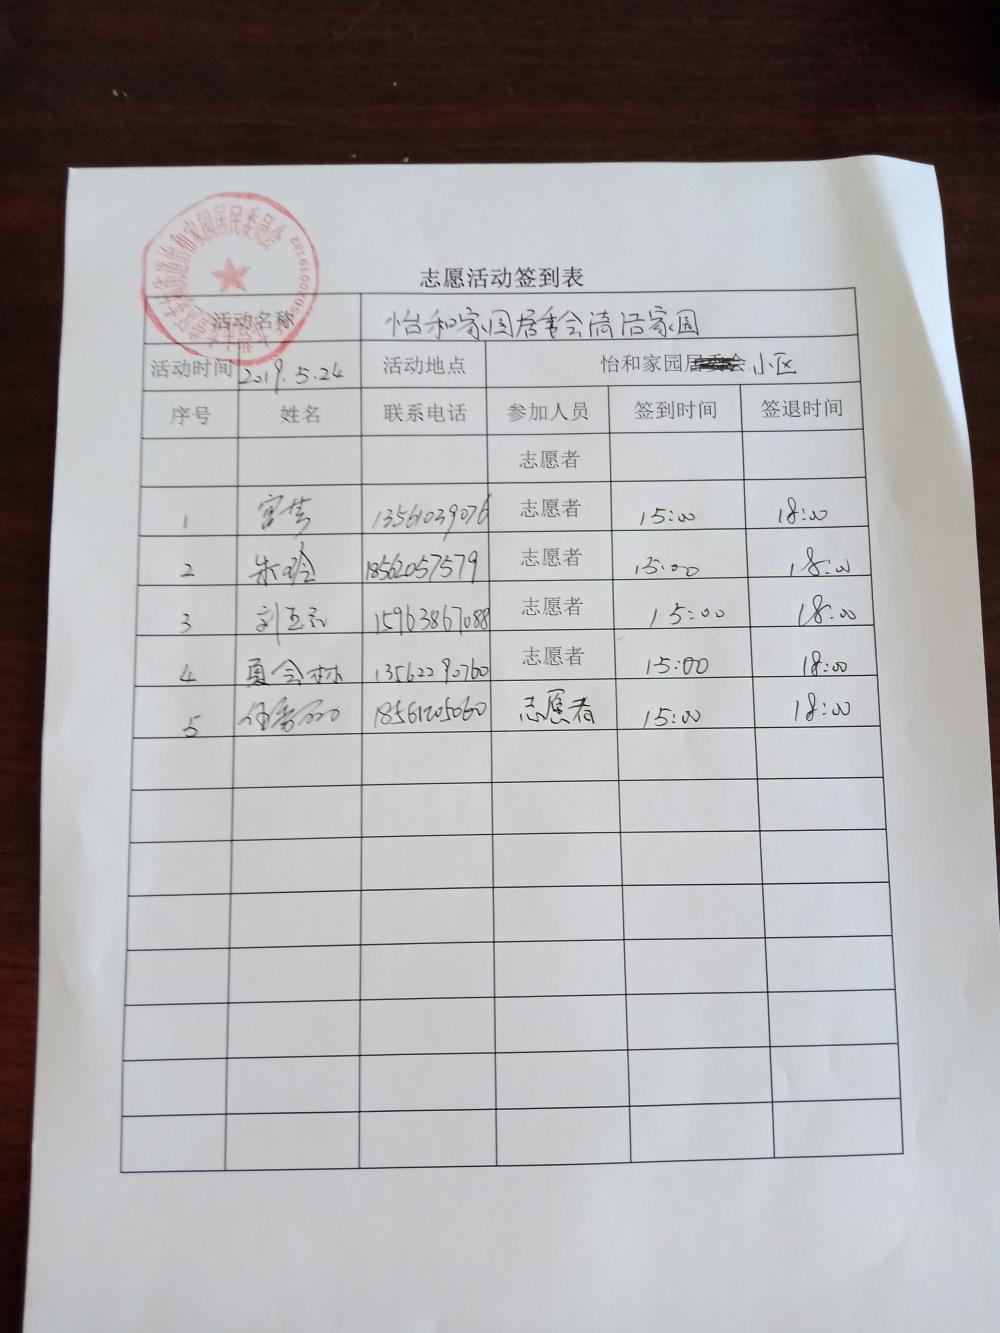 志愿活动签到表
活动名称 怡和家园居委会清洁家园
活动时间 2019.5.24 活动地点 怡和家园 小区
序号 姓名 联系电话 参加人员 签到时间 签退时间
志愿者
1 宫芸 13561039076 志愿者 15:00 18:00
2 朱玲 18562057579 志愿者 15:00 18:00
3 15963867088 志愿者 15:00 18:00
4 夏会林 13562290760 志愿者 15:00 18:00
5 18561205060 志愿者 15:00 18:00
怡和家园居民委员会